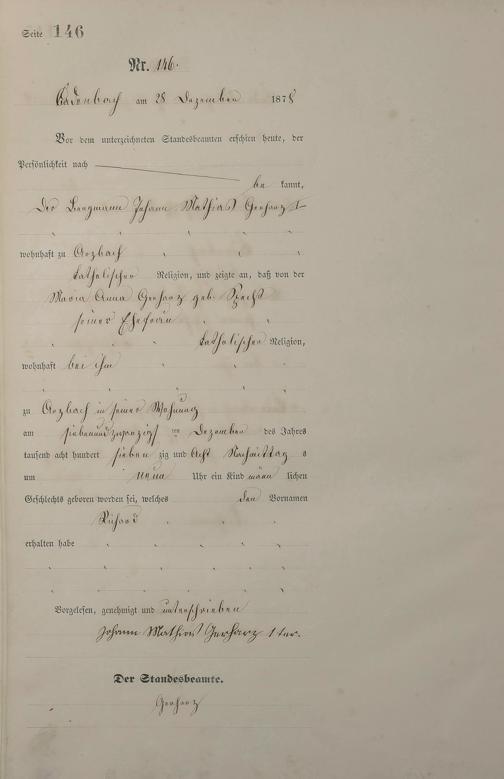 Seite 146
Nr. 146.
Cadenbach am 28 Dezember 1878
Vor dem unterzeichneten Standesbeamten erschien heute, der
Persönlichkeit nach
be kannt,
Der Bergmann Johann Mathias Gerharz I
wohnhaft zu Arzbach
katholischer Religion, und zeigte an, daß von der
Maria Anna Gerharz geb. Specht
seiner Ehefrau
katholischer Religion,
wohnhaft bei ihm
zu Arzbach in seiner Wohnung
am siebenundzwanzigs ten Dezember des Jahres
tausend acht hundert sieben zig und Acht Nachmittag s
um neun Uhr ein Kind männ lichen
Geschlechts geboren worden sei, welches den Vornamen
Richard
erhalten habe
Vorgelesen, genehmigt und unterschrieben
Johann Mathias Gerharz 1ter.
Der Standesbeamte.
Gerharz